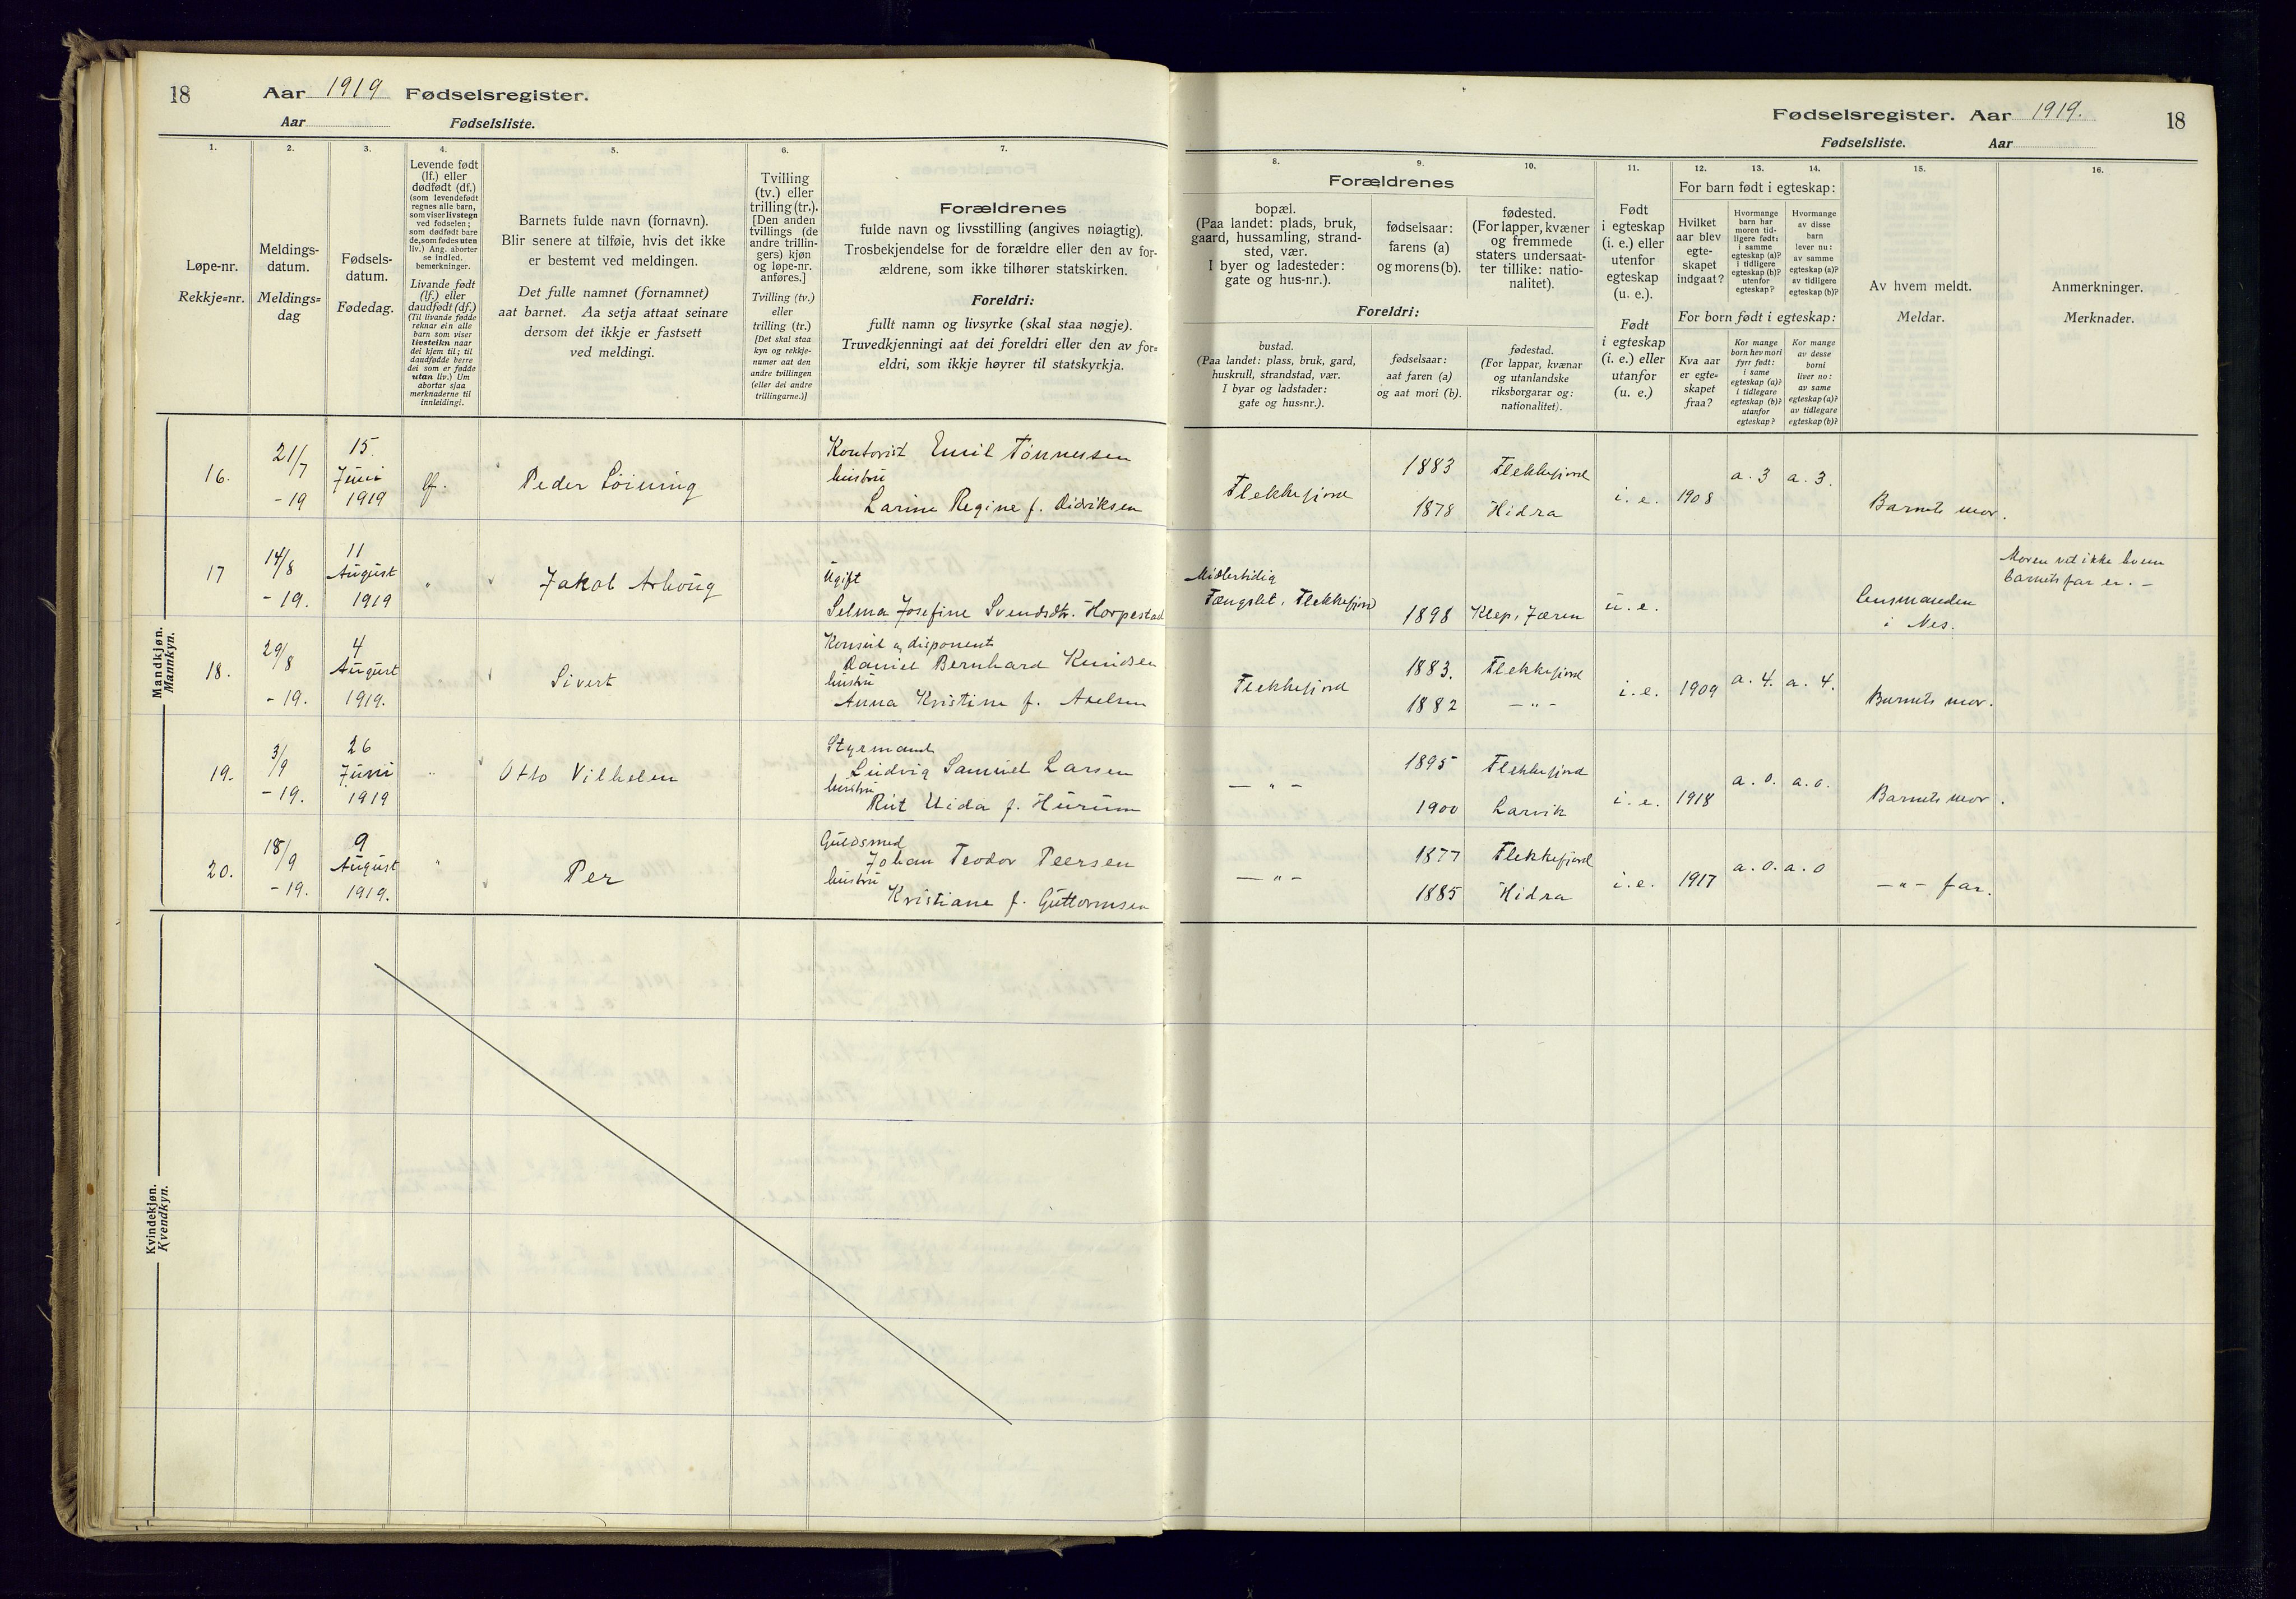 18
Aar 1919 Fødselsregister.
Aar Fødselsliste.
Fødselsregister. Aar 1919.
18
Fødselsliste. Aar
1.
Løpe-nr.
Rekkje=nr.
2.
Meldings-
datum.
Meldings=
dag
3.
Fødsels-
datum.
Fødedag.
4.
Levende født
(lf.) eller
dødfødt (df.)
(som levendefødt
regnes alle barn,
som viser livstegn
ved fødselen;
som dødfødt bare
de, som fødes uten
liv.) Ang. aborter
se indled.
bemerkninger.
Livande født
(lf.) eller
daudfødt (df.)
(Til livande fødde
reknar ein alle
barn som viser
livsteikn naar
dei kjem til; til
daudfødde berre
dei som er fødde
utan liv.) Um
abortar sjaa
merknaderne til
innleidingi.
5.
Barnets fulde navn (fornavn).
Blir senere at tilføie, hvis det ikke
er bestemt ved meldingen.
Det fulle namnet (fornamnet)
aat barnet. Aa setja attaat seinare
dersom det ikkje er fastsett
ved meldingi.
6.
Tvilling
(tv.) eller
trilling (tr.).
[Den anden
tvillings (de
andre trillin-
gers) kjøn
og løpe-nr.
anføres.]
Tvilling (tv.)
eller
trilling (tr.)
[Det skal staa
kyn og rekkje-
numer aat den
andre tvillingen
(eller dei andre
trillingarne.)]
7.
Forældrenes
fulde navn og livsstilling (angives nøiagtig).
Trosbekjendelse for de forældre eller den av for-
ældrene, som ikke tilhører statskirken.
Foreldri:
fullt namn og livsyrke (skal staa nøgje).
Truvedkjenningi aat dei foreldri eller den av for=
eldri, som ikkje høyrer til statskyrkja.
Forældrenes
8.
bopæl.
(Paa landet: plads, bruk,
gaard, hussamling, strand-
sted, vær.
I byer og ladesteder:
gate og hus-nr.).
9.
fødselsaar:
farens (a)
og morens (b).
10.
fødested.
(For lapper, kvæner
og fremmede
staters undersaat-
ter tillike: natio-
nalitet).
Foreldri:
bustad.
(Paa landet: plass, bruk, gard,
huskrull, strandstad, vær.
I byar og ladstader:
gate og hus=nr.).
fødselsaar:
aat faren (a)
og aat mori (b).
fødestad.
(For lappar, kvænar
og utanlandske
riksborgarar og:
nationalitet).
11.
Født
i egteskap
(i. e.) eller
utenfor
egteskap
(u. e.).
Født
i egteskap
(i. e.) eller
utanfor
(u. e.)
12.
13.
14.
For barn født i egteskap:
Hvilket
aar blev
egte-
skapet
indgaat?
Hvormange
barn har
moren tid-
ligere født:
i samme
egteskap (a)?
i tidligere
egteskap (b)?
utenfor
egteskap?
Hvormange
av disse
barn
lever nu:
av samme
egteskap (a)?
av tidligere
egteskap (b)?
For born født i egteskap:
Kva aar
er egte=
skapet
fraa?
Kor mange
born hev mori
fyrr født:
i same
egteskap (a)?
i tidlegare
egteskap (b)?
utanfor
egteskap?
Kor mange
av desse
borni
liver no:
av same
egteskap (a)?
av tidlegare
egteskap (b)?
15.
Av hvem meldt.
Meldar.
16.
Anmerkninger.
Merknader.
Mandkjøn.
Mannkyn.
16.
21/7
-19
15.
Juni
1919
lf.
Peder
Kontorist Emil Tönnesen
hustru
Larine Regine f. Didriksen
Flekkefjord
1883
1878
Flekkefjord
Hidra
i. e.
1908
a. 3
a. 3.
Barnets mor.
17
14/8
-19.
11
August
1919
"
Jakob
Ugift
Selma Josefine Svendsdtr. Horpestad
Midlertidig
Fængslet, Flekkefjord
1898
Klep, Jæren
u. e.
Lensmanden
i Nes.
Moren vet ikke hvem
barnets far er. –
18.
29/8
-19.
4
August
1919.
Sivert
Konsul og disponent
Daniel Bernhard Knudsen
hustru
Anna Kristine f. Axelsen
Flekkefjord
1883.
1882
Flekkefjord
– " –
i. e.
1909
a. 4.
a. 4.
Barnets mor.
19.
3/9
-19.
26
Juni
1919
"
Otto Vilhelm
Styrmand
Ludvig Samuel Larsen
hustru
Rut f. Hurum
– " –
1895
1900
Flekkefjord
Larvik
i. e.
1918
a. 0.
a. 0.
Barnets mor.
20.
18/9
-19.
9
August
1919.
"
Per
Guldsmed
Johan Teodor Peersen
hustru
Kristiane f. Guttormsen
– " –
1877
1885
Flekkefjord
Hidra
i. e.
1917
a. 0.
a. 0
– " – far.
Kvindekjøn.
Kvendkyn.